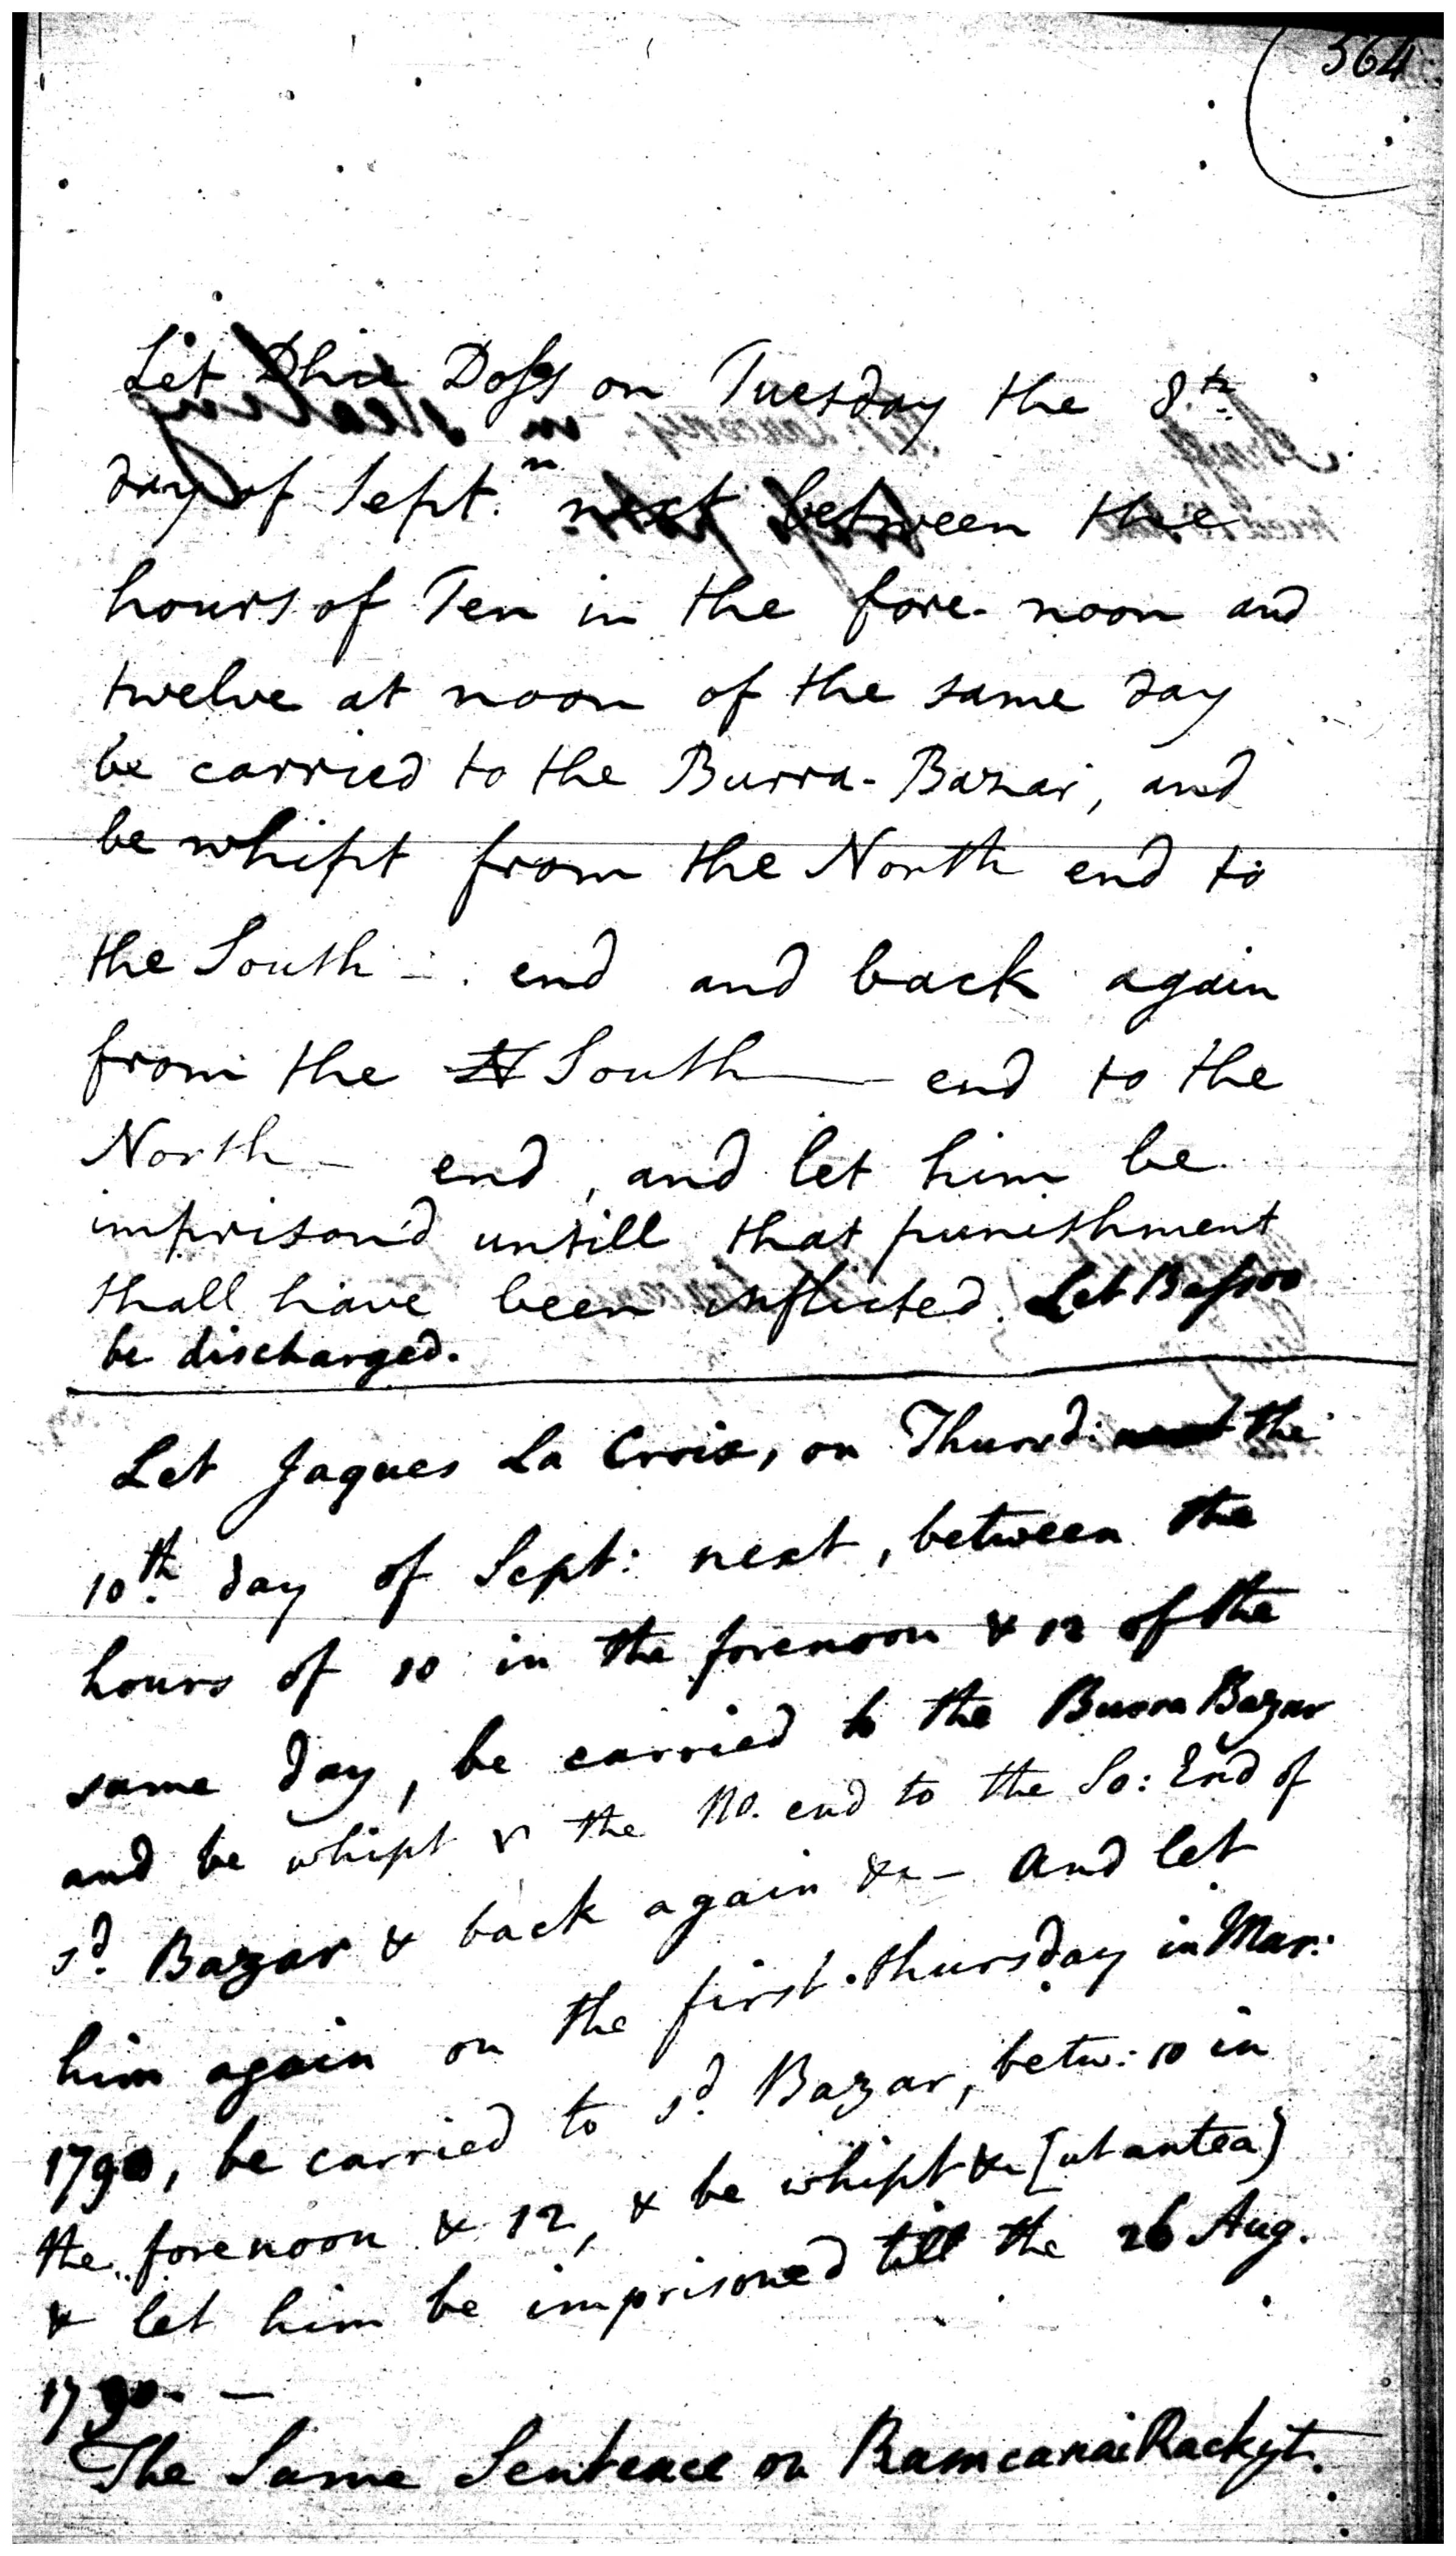 364
Let Doss on Tuesday the 8th
day of Sept.r next between the
hours of Ten in the fore-noon and
twelve at noon of the same day
be carried to the Burra-Bazar, and
be whipt from the North end to
the South - end and back again
from the N South — end to the
North - end, and let him be
imprison'd untill that punishment
shall have been inflicted. Let Bassoo
be discharged.
Let Jaques La Croix, on Thursd: next the
10th. day of Sept: next, between the
hours of 10 in the forenoon & 12 of the
same day, be carried to the Burra Bazar
and be whipt the No. end to the So: End of
sd. Bazar & back again &c - and let
him again on the first thursday in Mar:
1790, be carried to sd. Bazar, betw: 10 in
the forenoon & 12, & be whipt &c [ut antea]
& let him be imprisoned till the 26 Aug.
1790. —
The Same Sentence on Ramcanai Rackyt.